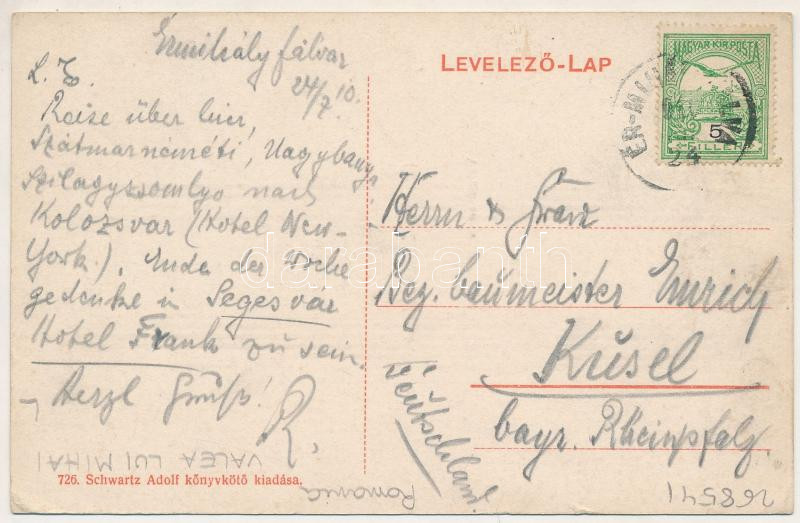 Érmihályfálva
24/7 10.
L. E.
Reise über hier,
Szátmarnéméti, Nagybanya
Szilagyssomlyo nach
Kolozsvar (Hotel New-
York). Ende der Woche
gedenke in Segesvar
Hotel Frank zu sein.
Herzl Gruß!
R.
VALEA LUI MIHAI
726. Schwartz Adolf könyvkötő kiadása.
LEVELEZŐ-LAP
MAGYAR KIR. POSTA
5
FILLÉR
ÉR-MIH
24
Herrn & Frau
Bez. baumeister Emrich
Kusel
bayr. Rheinpfalz.
Deutschland.
Romania
268541
darabanth